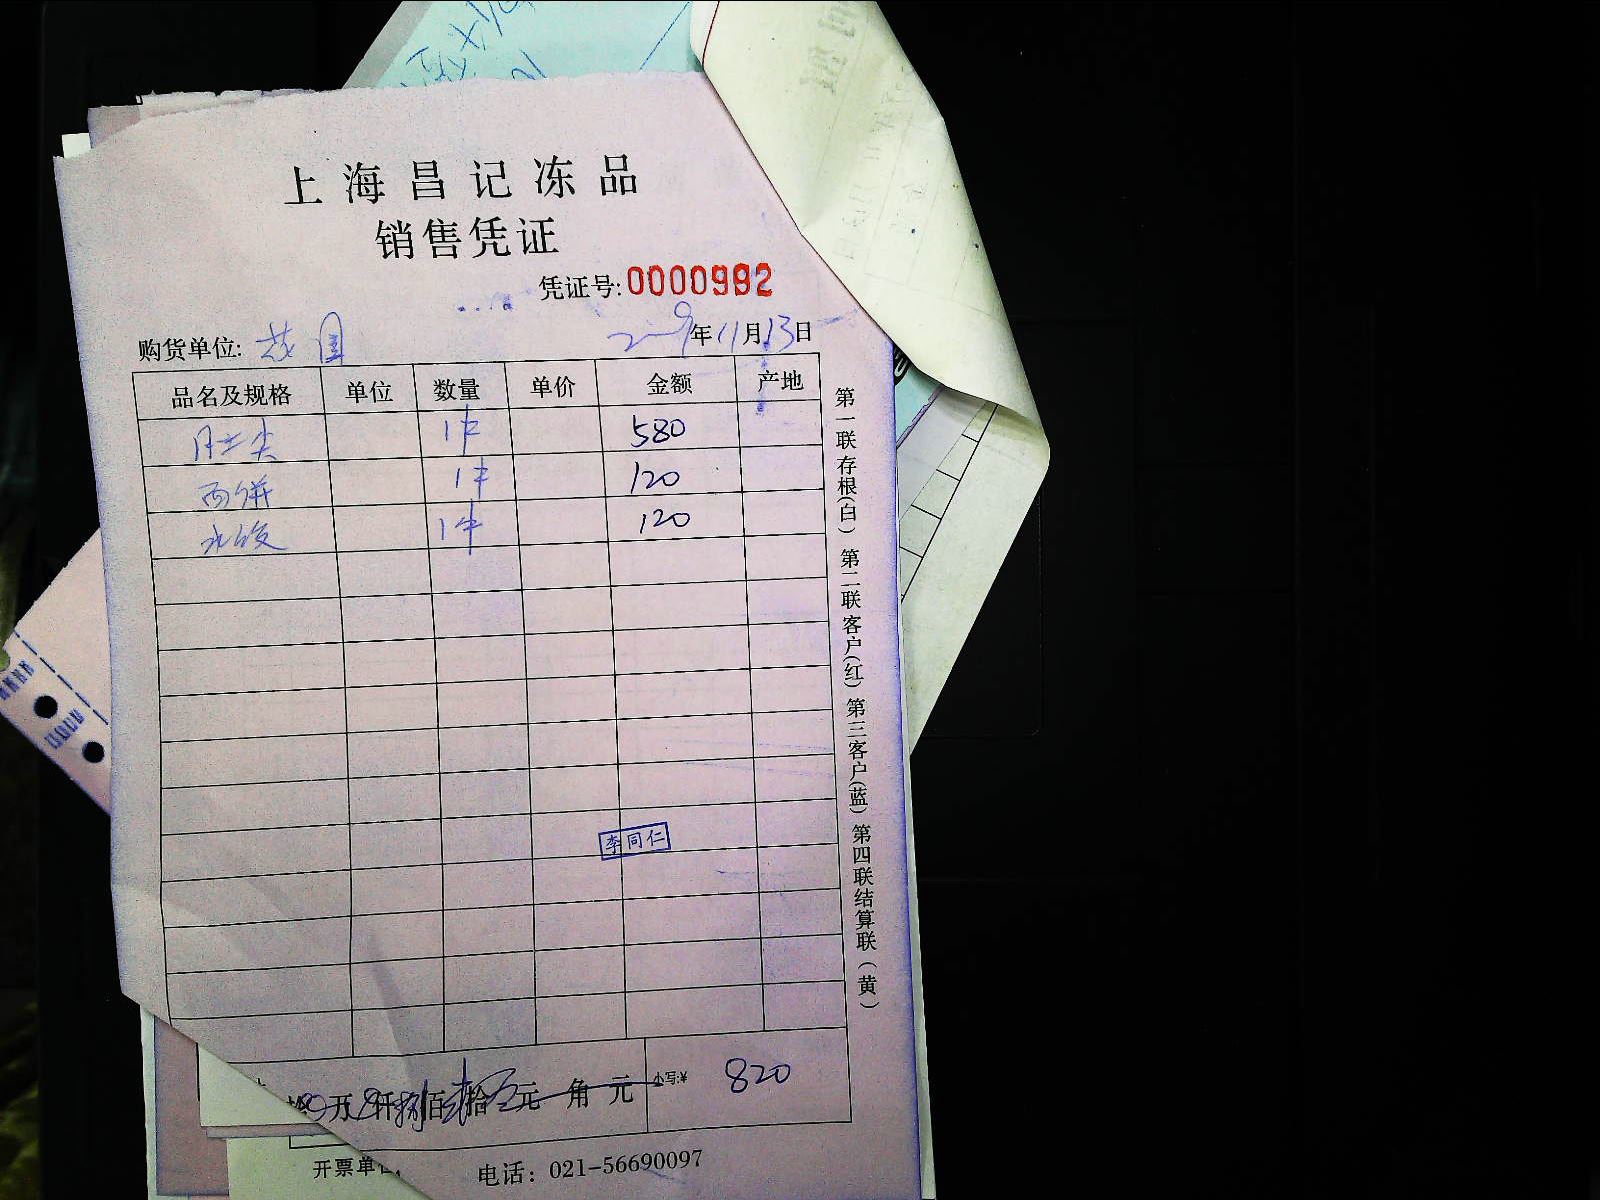 上海昌记冻品
销售凭证
凭证号:0000992
购货单位: 茂园
2009年11月13日
品名及规格 单位 数量 单价 金额 产地
1件 580
1件 120
1件 120
李同仁
万 仟捌佰贰拾 元 角 元 小写:¥ 820
开票单位
电话: 021-56690097
第一联存根(白) 第二联客户(红) 第三客户(蓝) 第四联结算联(黄)